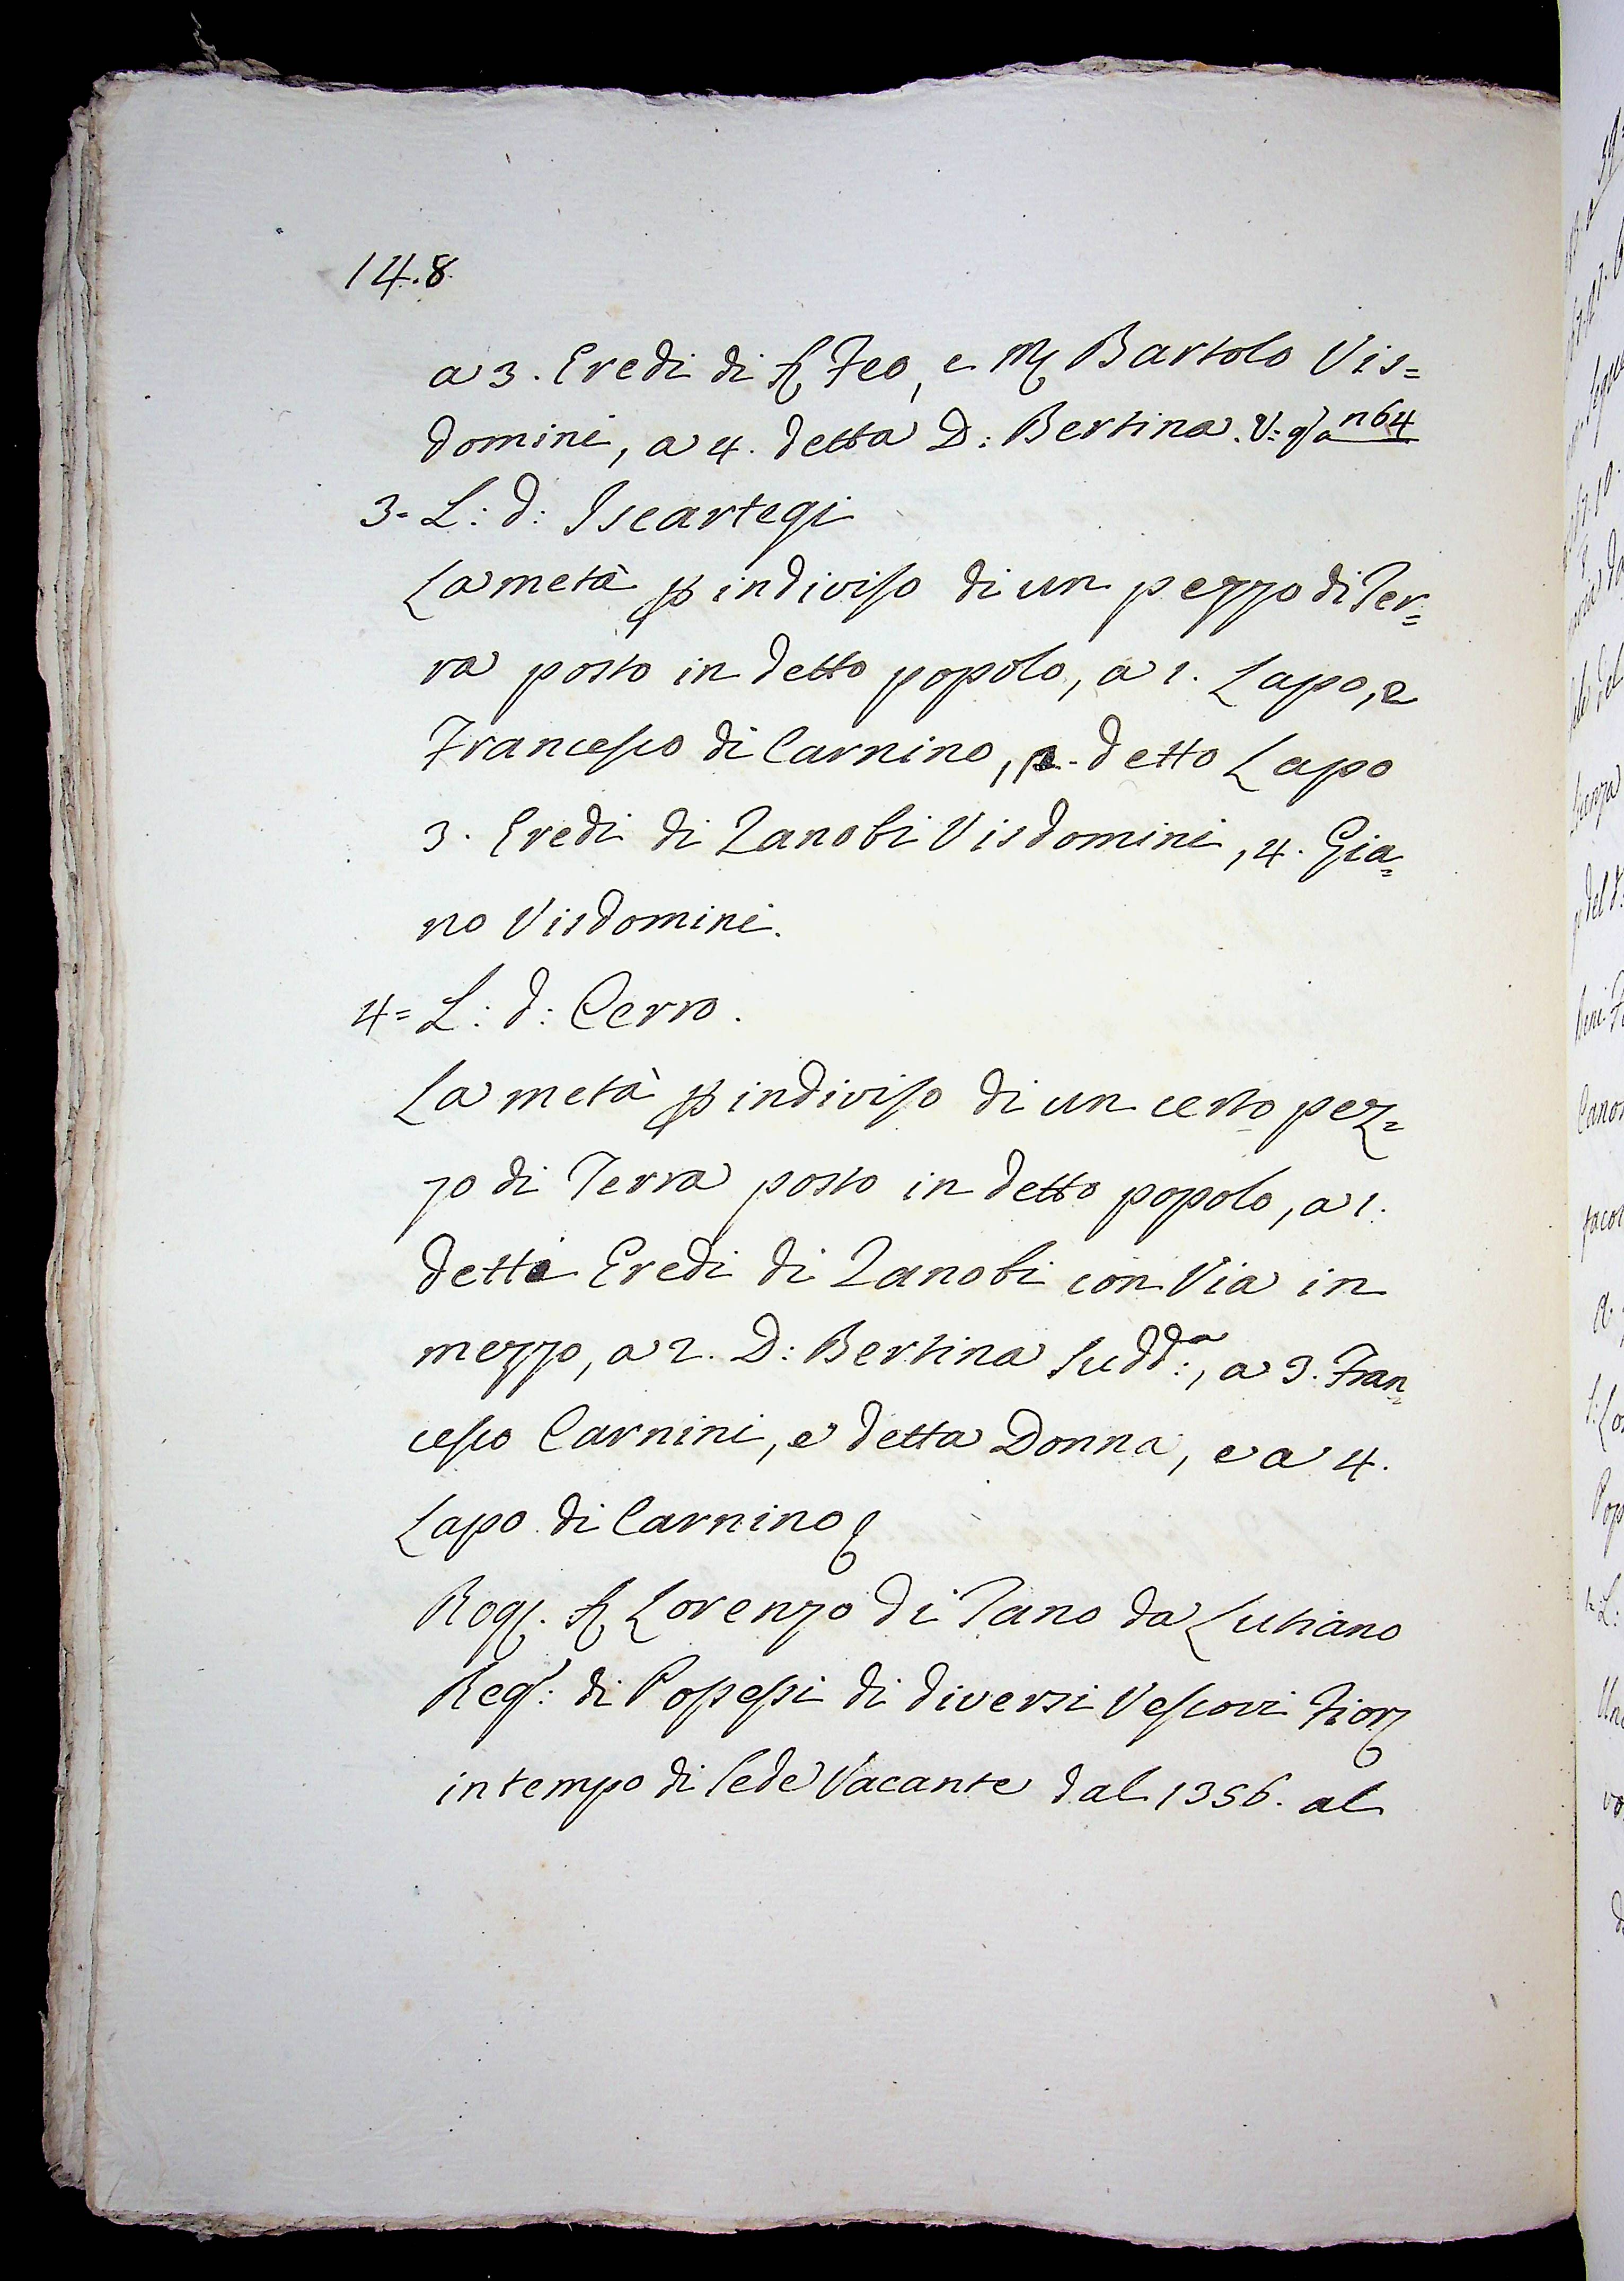 148
a 3. Eredi di Sr Feo, e Mr Bartolo Vis=
domini, a 4. detta D: Bertina. V: qo a n64
3= L: d: Iscartegi
La metà p indiviso di un pezzo di Ter=
ra posto in detto popolo, a 1. Lapo, e
Francesco di Carnino, 2. detto Lapo
3. Eredi di Zanobi Visdomini, 4. Gia=
no Visdomini.
4= L: d: Cerro.
La metà p indiviso di un certo pez=
zo di Terra posto in detto popolo, a 1.
detti Eredi di Zanobi con Via in
mezzo, a 2. D: Bertina sudd:a, a 3. Fran=
cesco Carnini, e detta Donna, e a 4.
Lapo di Carnino
Rog. Sr Lorenzo di Tano da Lutiano
Reg: di Possessi di diversi Vescovi Fior
in tempo di Sede Vacante dal 1356. al